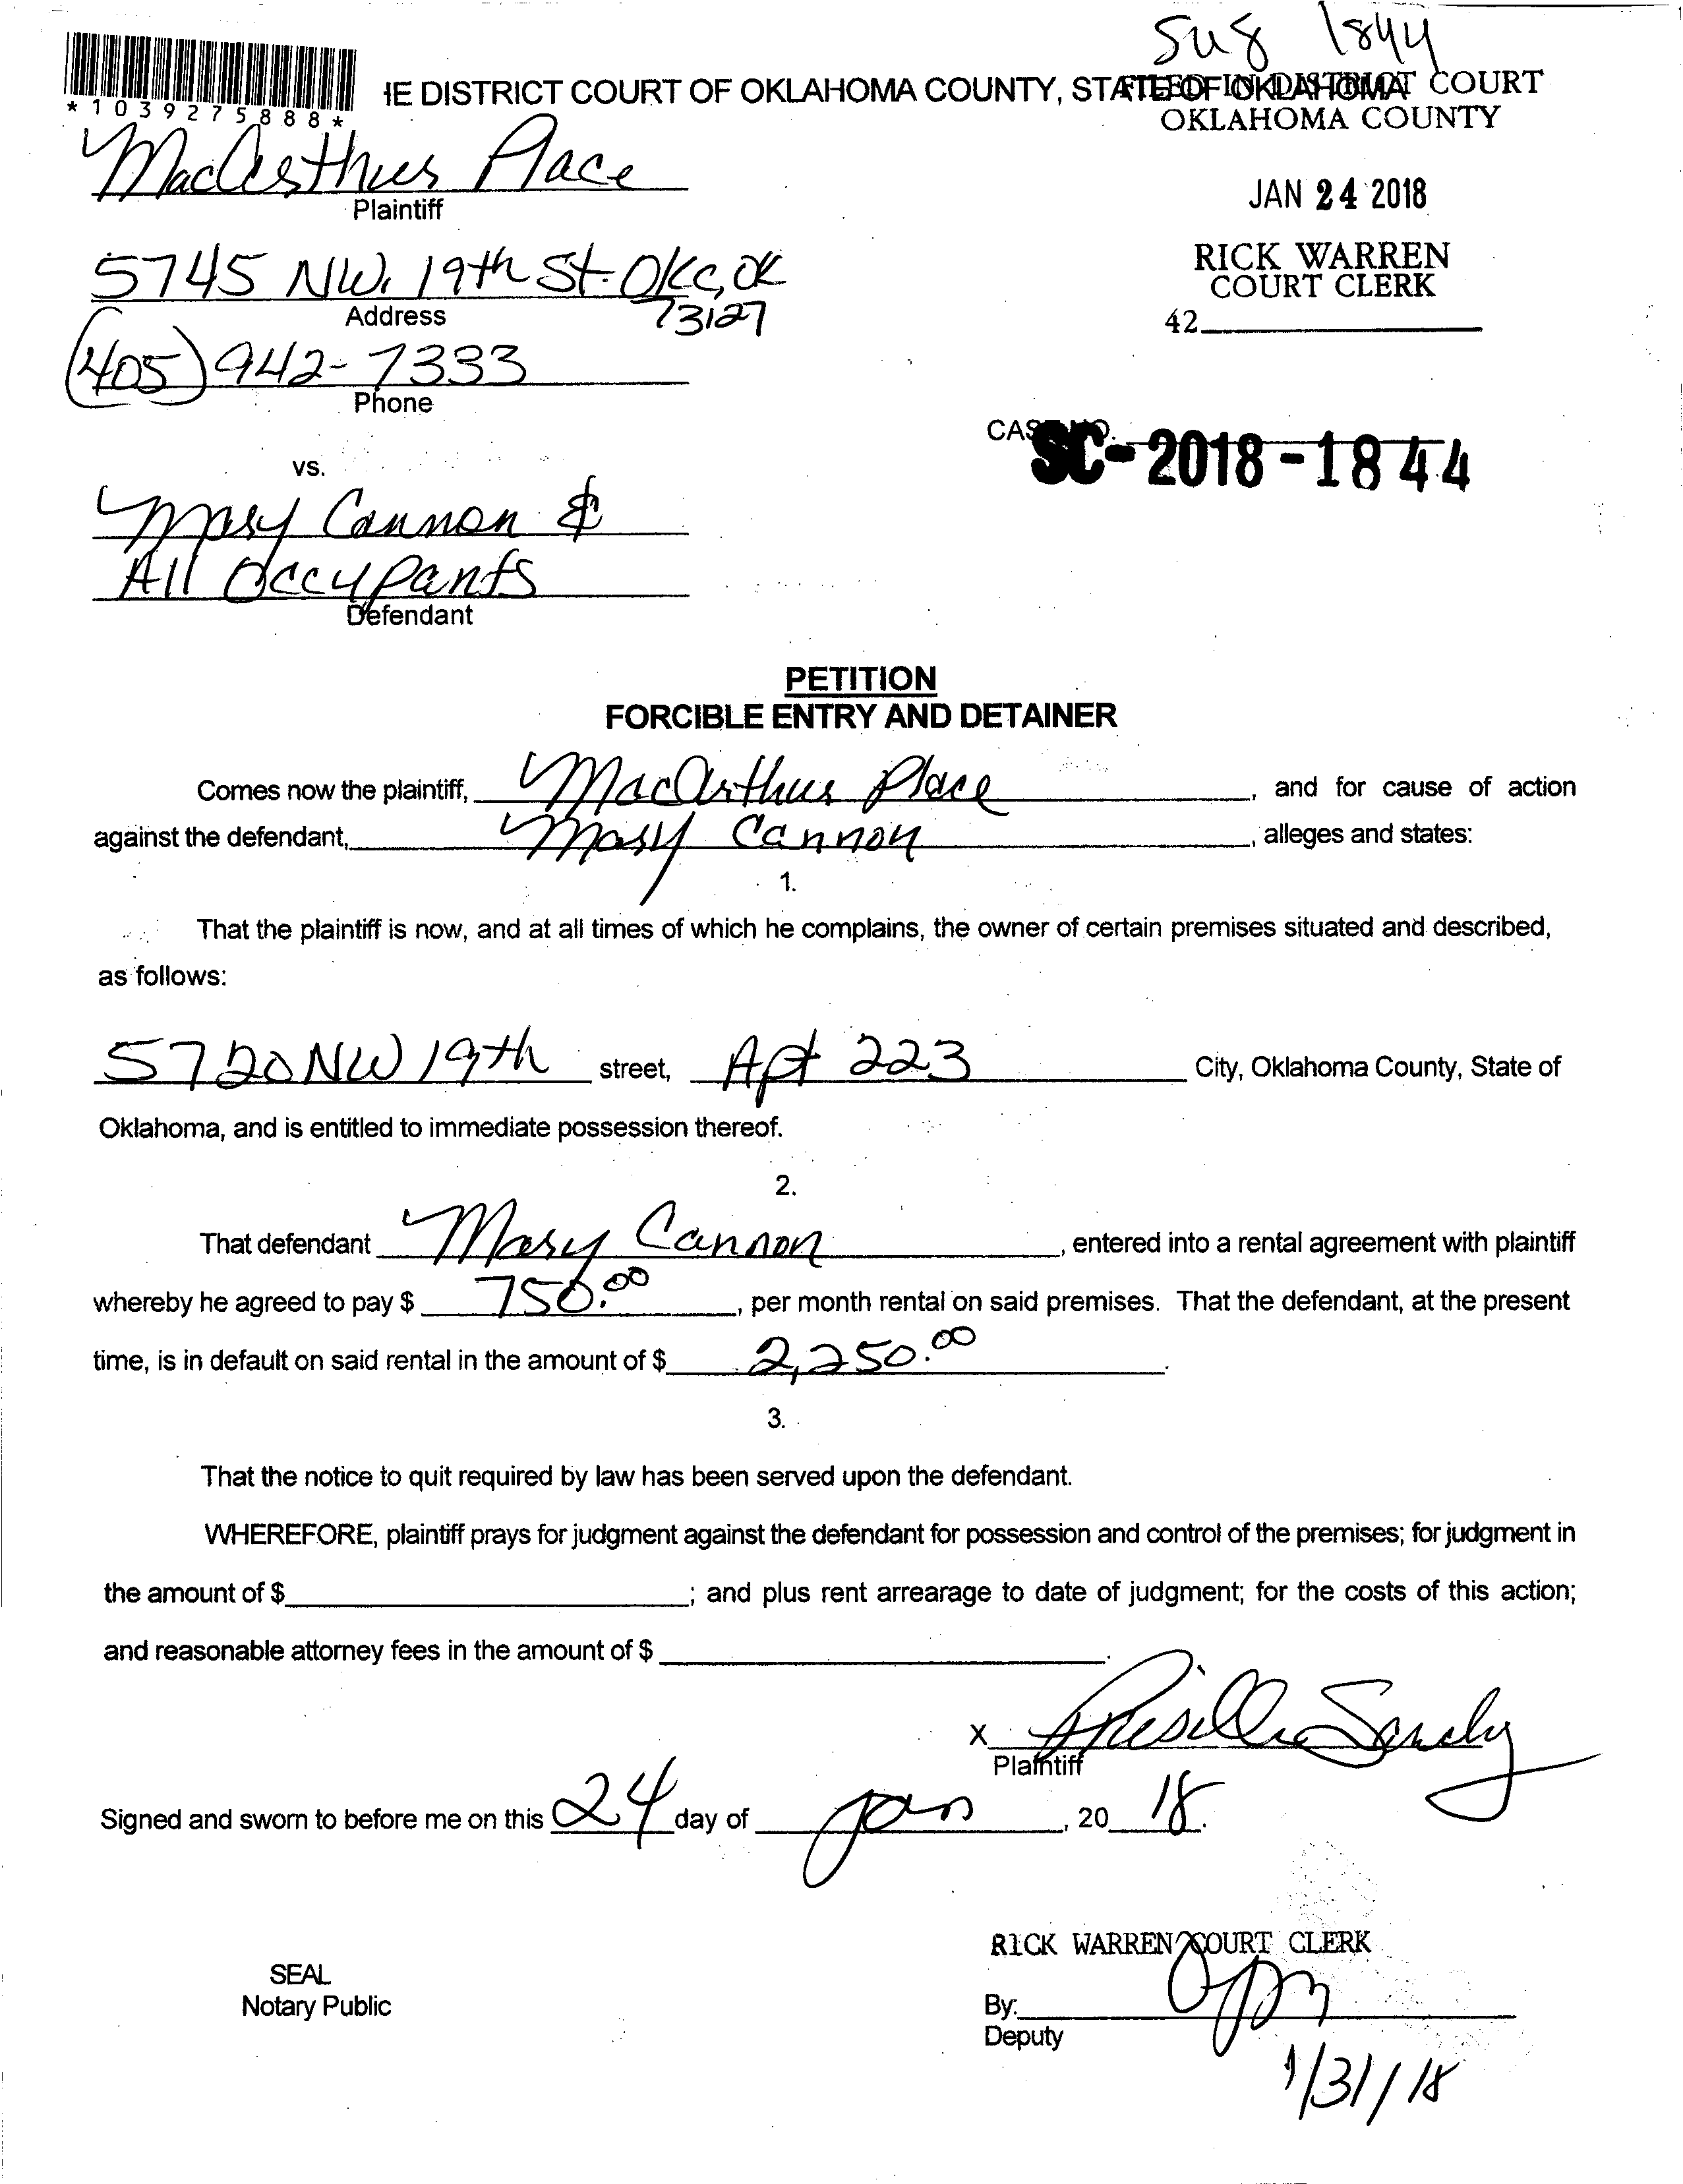 Sug 1844
*1039275888*
IE DISTRICT COURT OF OKLAHOMA COUNTY, STATE OF OKLAHOMA
FILED IN DISTRICT COURT
OKLAHOMA COUNTY
MacArthur Place
Plaintiff
JAN 24 2018
5745 NW. 19th St. OKC, OK
73127
Address
RICK WARREN
COURT CLERK
42
(405) 942-7333
Phone
CASE NO.
SC-2018-1844
vs.
Mary Cannon &
All Occupants
Defendant
PETITION
FORCIBLE ENTRY AND DETAINER
Comes now the plaintiff, MacArthur Place, and for cause of action
against the defendant, Mary Cannon, alleges and states:
1.
That the plaintiff is now, and at all times of which he complains, the owner of certain premises situated and described,
as follows:
5720 NW 19th street, Apt 223 City, Oklahoma County, State of
Oklahoma, and is entitled to immediate possession thereof.
2.
That defendant Mary Cannon, entered into a rental agreement with plaintiff
whereby he agreed to pay $ 750.00, per month rental on said premises. That the defendant, at the present
time, is in default on said rental in the amount of $ 2,250.00.
3.
That the notice to quit required by law has been served upon the defendant.
WHEREFORE, plaintiff prays for judgment against the defendant for possession and control of the premises; for judgment in
the amount of $ ; and plus rent arrearage to date of judgment; for the costs of this action;
and reasonable attorney fees in the amount of $ .
X
Plaintiff
Signed and sworn to before me on this 24 day of Jan, 20 18.
RICK WARREN COURT CLERK
SEAL
Notary Public
By:
Deputy
1/31/18